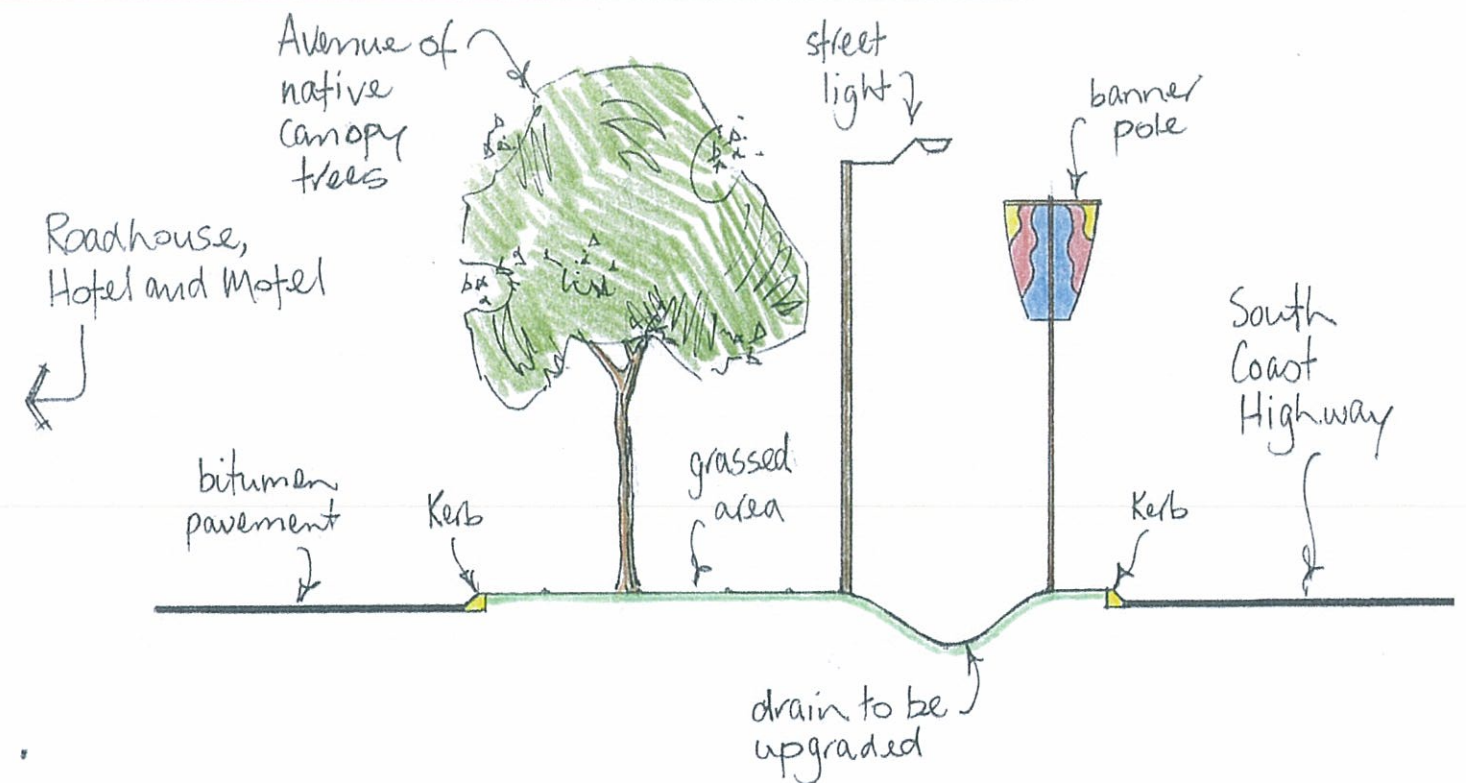 Avenue of
native
canopy
trees
street
light
banner
pole
Roadhouse,
Hotel and Motel
South
Coast
Highway
bitumen
pavement
Kerb
grassed
area
Kerb
drain to be
upgraded